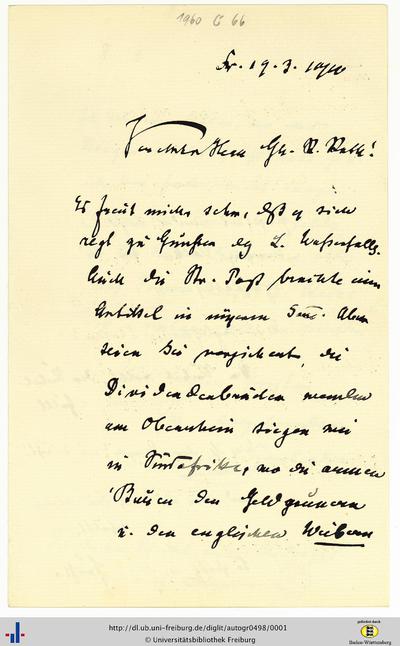 1960 G 66
Fr. 19. 3. 1900
Verehrter Herr Gh. R. Rath!
Es freut mich sehr, daß es sich
regt zu Gunsten des L. Wasserfalls.
Auch die Str. Post brachte einen
Artikel in unserem Sinne. Aber
seien Sie versichert, die
Dividendenbrüder werden
am Oberrhein siegen wie
in Südafrika, wo die armen
Buren den Geldgaunern
u. den englischen Weibern
http://dl.ub.uni-freiburg.de/diglit/autogr0498/0001
© Universitätsbibliothek Freiburg
gefördert durch
Baden-Württemberg